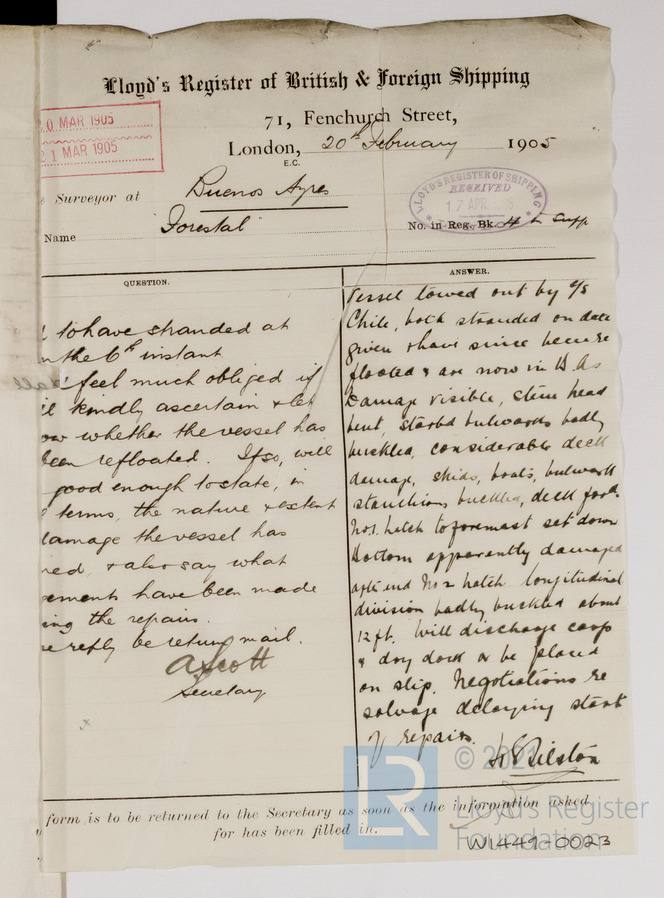 Lloyd's Register of British & Foreign Shipping
71, Fenchurch Street,
London, 20th February 1905
E.C.
0 MAR 1905
21 MAR 1905
e Surveyor at Buenos Ayres
LLOYD'S REGISTER OF SHIPPING
RECEIVED
17 APR
Name Forestal
No. in Reg. Bk. 4 in Supp
QUESTION.
to have stranded at
n the 6th instant
feel much obliged if
ll kindly ascertain & let
ow whether the vessel has
been refloated. If so, will
good enough to state, in
terms, the nature & extent
damage the vessel has
ned, & also say what
ements have been made
ing the repairs.
e reply by return mail.
A Scott
Secretary
ANSWER.
Vessel towed out by s/s
Chile, both stranded on date
given & have since been re
floated & are now in B. As
Damage visible, stem head
bent, starb'd bulwarks badly
buckled, considerable deck
damage, skids, boats, bulwark
stanchions buckled, deck
No 1 hatch to foremast set down
Bottom apparently damaged
aft end No 2 hatch longitudinal
division badly buckled about
12 ft. Will discharge cargo
& dry dock or be placed
on slip. Negotiations re
salvage delaying start
of repairs.
form is to be returned to the Secretary as soon as the information asked
for has been filled in.
© 2021
LR
Lloyd's Register
Foundation
W1449-0023